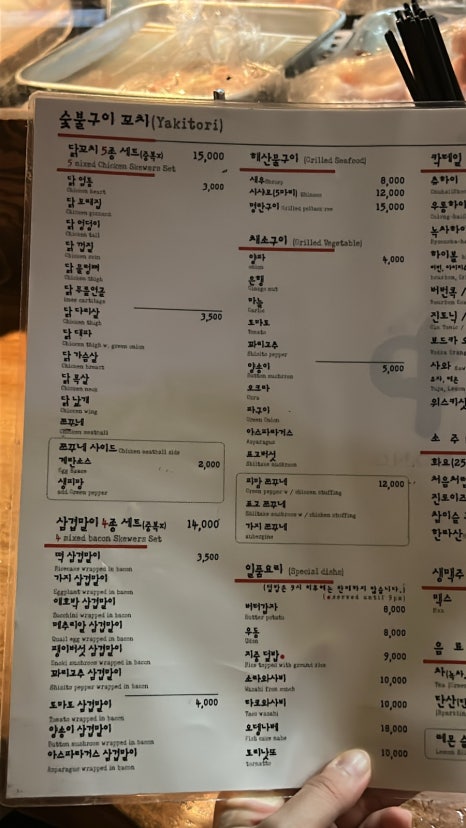 숯불구이 꼬치(Yakitori)
닭꼬치 5종 세트(중복X) 15,000
5 mixed Chicken Skewers Set
닭 염통 3,000
Chicken heart
닭 모래집
Chicken gizzard
닭 엉덩이
Chicken tail
닭 껍질
Chicken skin
Chicken thigh
닭 무릎연골
knee cartilage
닭 다리살 3,500
Chicken thigh
닭 대파
Chicken thigh w. green onion
닭 가슴살
Chicken breast
닭 목살
Chicken neck
닭 날개
Chicken wing
쯔꾸네
Chicken meatball
쯔꾸네 사이드 Chicken meatball side
계란소스 2,000
Egg sauce
생피망
add Green pepper
삼겹말이 4종 세트(중복X) 14,000
4 mixed bacon Skewers Set
떡 삼겹말이 3,500
Ricecake wrapped in bacon
가지 삼겹말이
Eggplant wrapped in bacon
애호박 삼겹말이
Zucchini wrapped in bacon
메추리알 삼겹말이
Quail egg wrapped in bacon
팽이버섯 삼겹말이
Enoki mushroom wrapped in bacon
꽈리고추 삼겹말이
Shisito pepper wrapped in bacon
토마토 삼겹말이 4,000
Tomato wrapped in bacon
양송이 삼겹말이
Button mushroom wrapped in bacon
아스파라거스 삼겹말이
Asparagus wrapped in bacon
해산물구이 (Grilled Seafood)
새우 Shrimp 8,000
시샤모(5마리) Shisamo 12,000
명란구이 Grilled pollack roe 15,000
채소구이 (Grilled Vegetable)
양파 4,000
onion
은행
Ginkgo nut
마늘
Garlic
토마토
Tomato
꽈리고추
Shisito pepper
양송이 5,000
Button mushroom
오크라
Ocra
파구이
Green Onion
아스파라거스
Asparagus
표고버섯
Shiitake mushroom
피망 쯔꾸네 12,000
Green pepper w / chicken stuffing
표고 쯔꾸네
Shiitake mushroom w / chicken stuffing
가지 쯔꾸네
aubergine
일품요리 (Special dishs)
(덮밥은 9시 이후에는 판매하지 않습니다.)
(served until 9pm)
버터감자 8,000
Butter potato
우동 8,000
Udon
지중 덮밥 9,000
Rice topped with ground rice
소라와사비 10,000
Wasabi from conch
타코와사비 10,000
Taco wasabi
오뎅나베 18,000
Fish cake nabe
토마나또 10,000
tomatto
칵테일
츄하이
우롱하이
녹차하이
하이볼
버번콕
Bourbon
진토닉
Gin Tonic
보드카
Vodka
사와
유자, 레몬
Yuja, Lemon
위스키
소 주
화요(25
처음처럼
진로이즈
참이슬
한라산
생맥주
맥스
Max
음 료
차(녹차
탄산(
레몬
Lemon